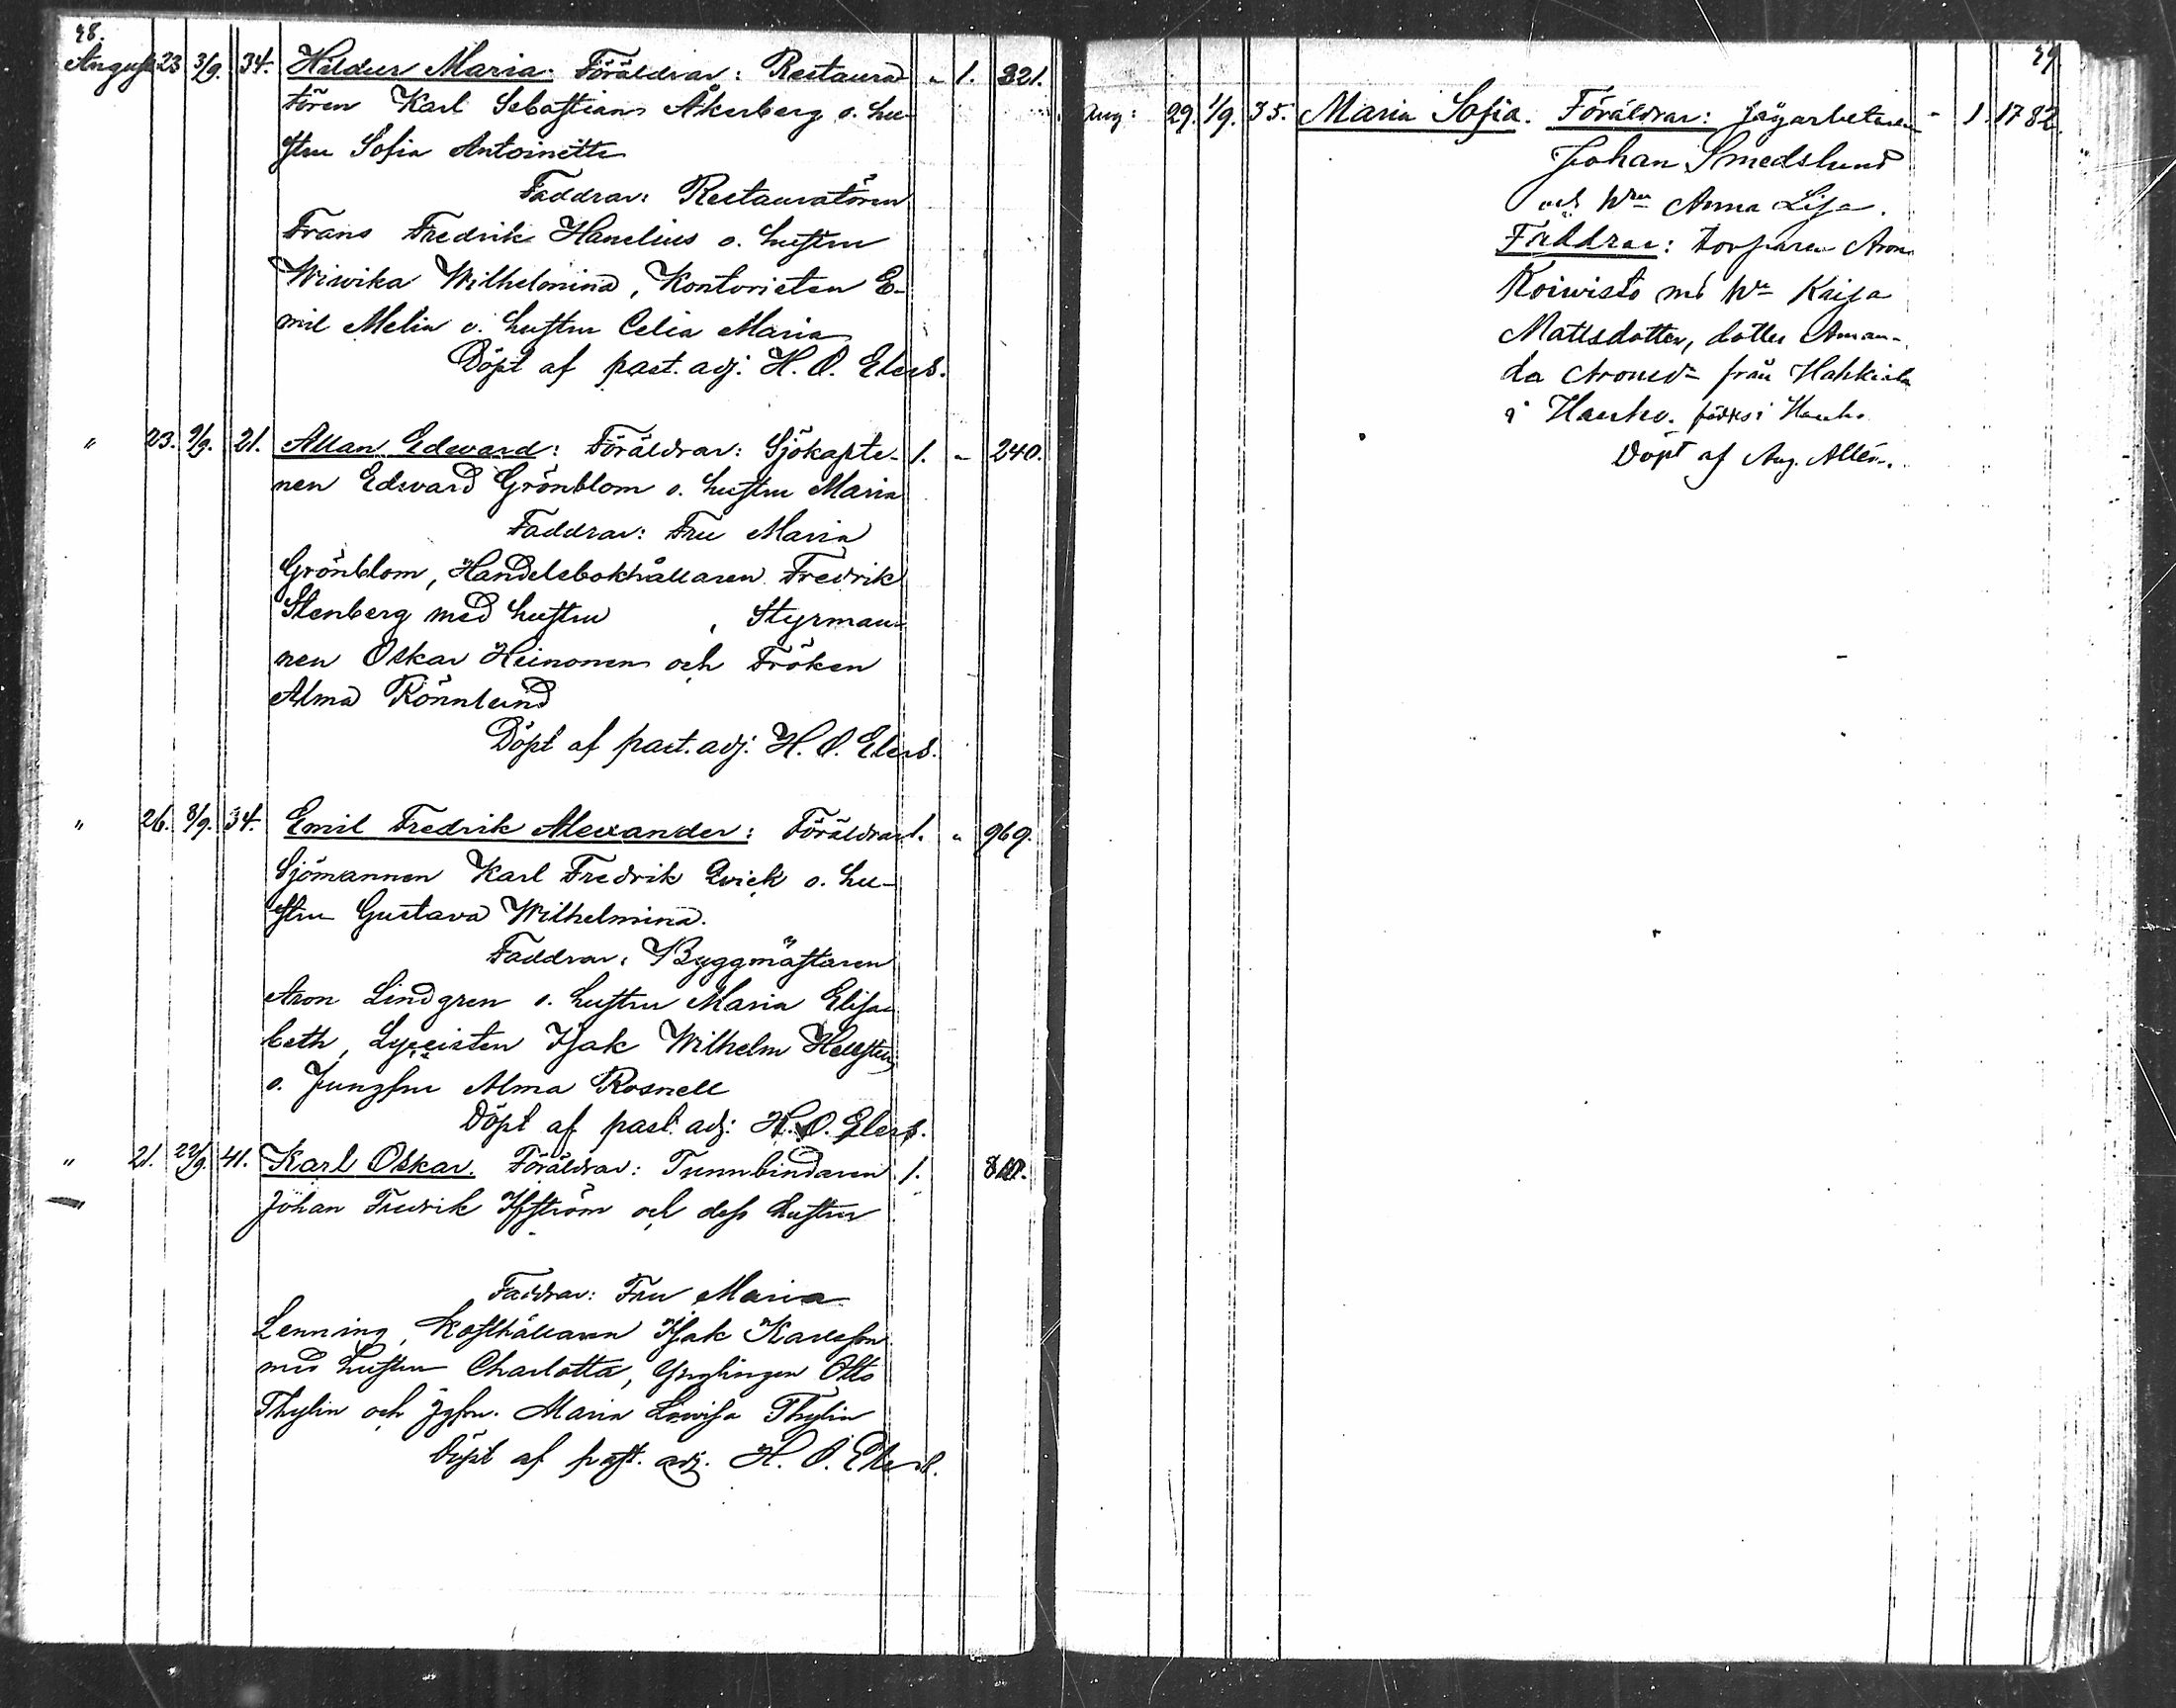 98.
August 23 3/9. 34. Hildur Maria. Föräldrar: Restaura- " 1. 321.
tören Karl Sebastian Åkerberg o. hu-
stru Sofia Antoinette
Faddrar: Restauratören
Frans Fredrik Hanelius o. hustru
Wiwika Wilhelmina, Kontoristen E-
mil Melin o. hustru Celia Maria
Döpt af past. adj. H. O. Elers.
" 23. 9/9. 21. Allan Edward: Föräldrar: Sjökapte- 1. " 240.
nen Edward Grönblom o. hustru Maria
Faddrar: Fru Maria
Grönblom, Handelsbokhållaren Fredrik
Stenberg med hustru , Styrman-
nen Oskar Heinonen och Fröken
Alma Rönnlund
Döpt af past. adj. H. O. Elers.
" 26. 8/9. 34. Emil Fredrik Alexander: Föräldrar 1. " 969.
Sjömannen Karl Fredrik Qvick o. hu-
stru Gustava Wilhelmina.
Faddrar: Byggmästaren
Aron Lindgren o. hustru Maria Elisa-
beth, Lyceisten Isak Wilhelm Hellsten
o. Jungfru Alma Rosnell
Döpt af past. adj. H. O. Elers.
" 21. 22/9. 41. Karl Oskar. Föräldrar: Tunnbindaren 1.
Johan Fredrik och dess hustru
Faddrar: Fru Maria
Lenning, Kosthållaren Isak Karlsson
med hustru Charlotta, Ynglingen Otto
Thylin och Jgfru. Maria Lovisa Thylin
Döpt af past. adj. H. O. Elers.
99.
Aug: 29. 1/9. 35. Maria Sofia. Föräldrar: Sågarbetaren " 1. 1782.
Johan Smedslund
och hru Anna Lisa.
Faddrar: torparen Aron
Koivisto med h Kaisa
Mattsdotter, dotter Aman-
da Aronsdr från
i Hauho. födes i Hauho
Döpt af Aug. Allén.